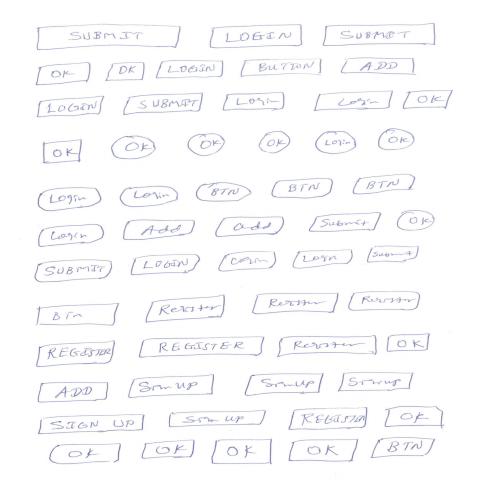 SUBMIT LOGIN SUBMIT
OK OK LOGIN BUTTON ADD
LOGIN SUBMIT Login Login OK
OK OK OK OK Login OK
Login Login BTN BTN BTN
Login Add add Submit OK
SUBMIT LOGIN Login Login Submit
BTn Register Register Register
REGISTER REGISTER Register OK
ADD SignUP SignUP Signup
SIGN UP Sign Up REGISTER OK
OK OK OK OK BTN